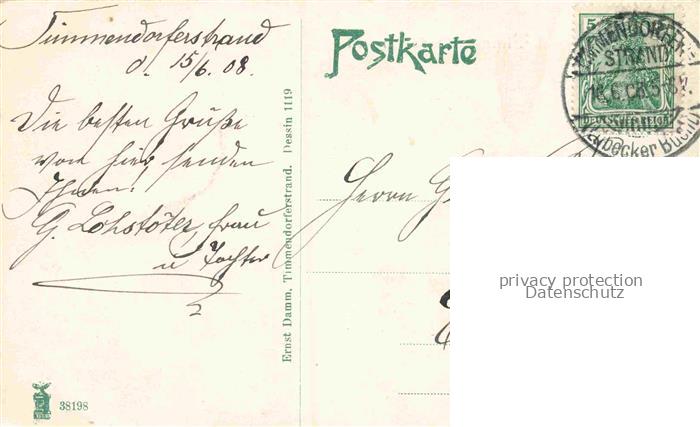 Timmendorferstrand
d. 15/6. 08.
Die besten Grüße
von hier senden
Ihnen,
G. Lohstöter, Frau
u Tochter
38198
Ernst Damm. Timmendorferstrand. Dessin 1119
Postkarte
5
TIMMENDORFER-
STRAND
DEUTSCHES REICH
Herrn G
privacy protection
Datenschutz